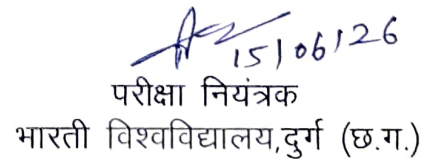 15/06/26
परीक्षा नियंत्रक
भारती विश्वविद्यालय,दुर्ग (छ.ग.)